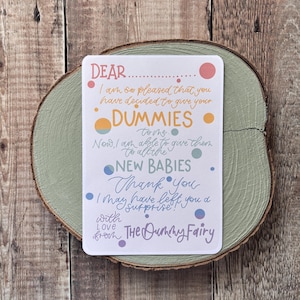 DEAR..................
I am so pleased that you
have decided to give your
DUMMIES
to me
Now I am able to give them
to all the
NEW BABIES
Thank You
I may have left you a
surprise
with
love
from The Dummy Fairy